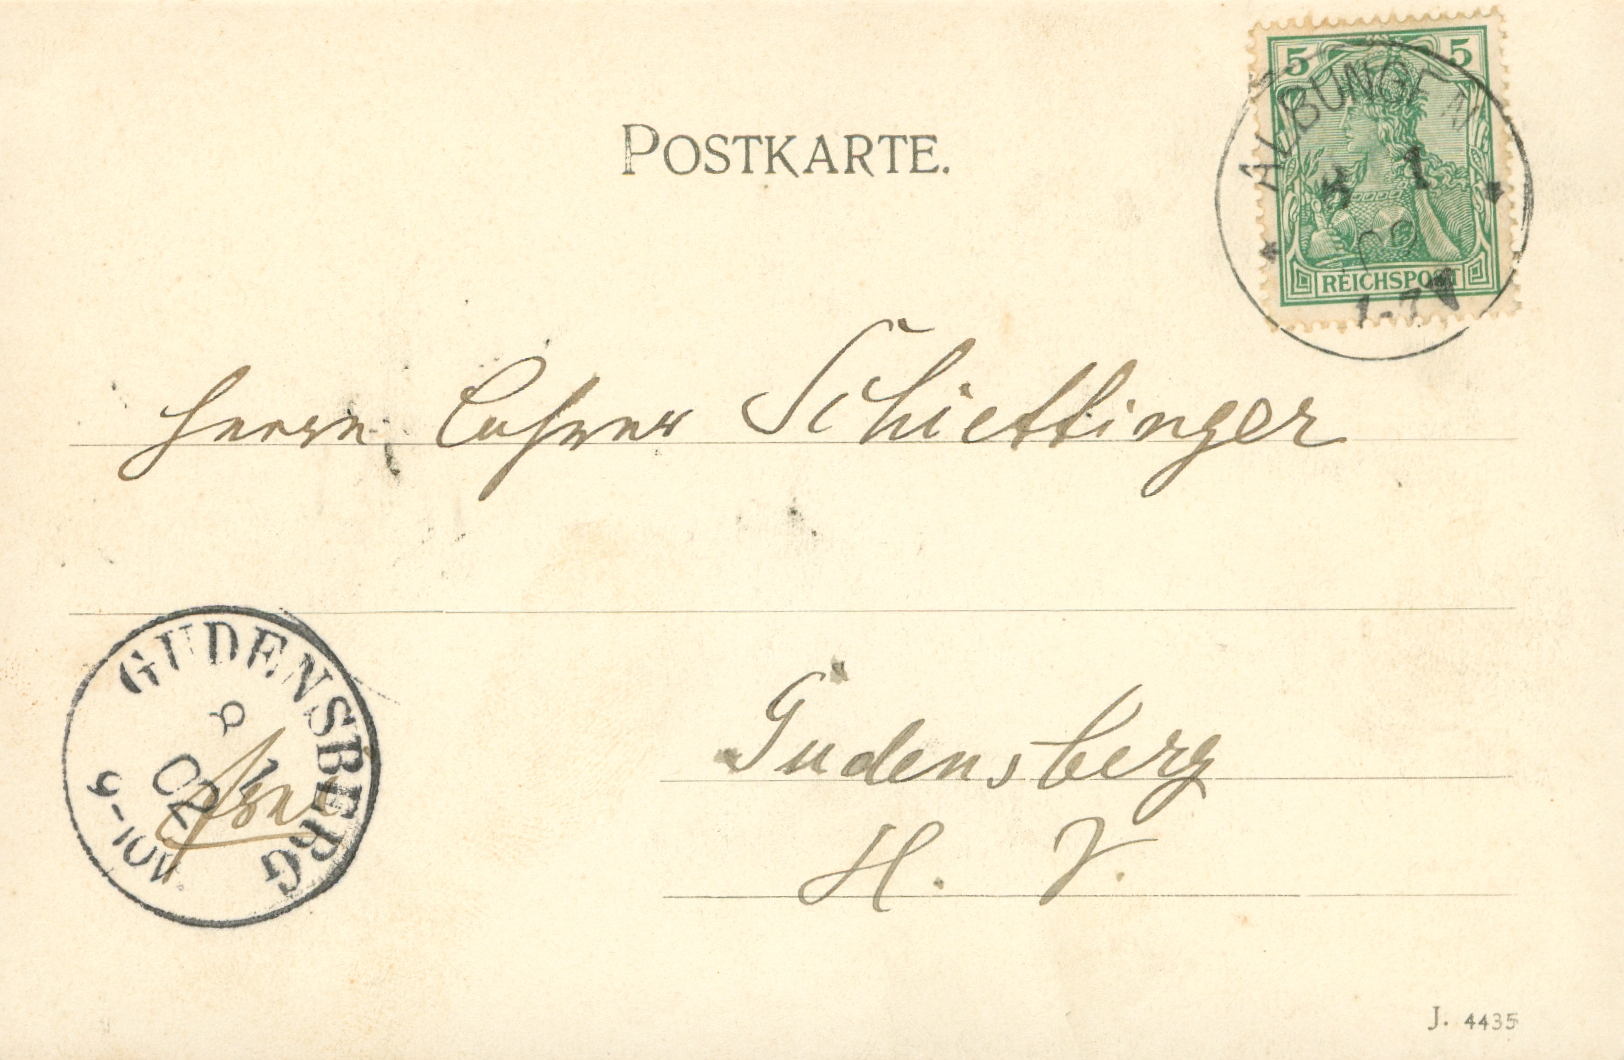 POSTKARTE.
5 5
REICHSPOST
ALBUNGEN
1
02
1-7
Herrn Lehrer Schiettinger
Gudensberg
GUDENSBERG
8
1
02
9-10V.
H. V.
J. 4435